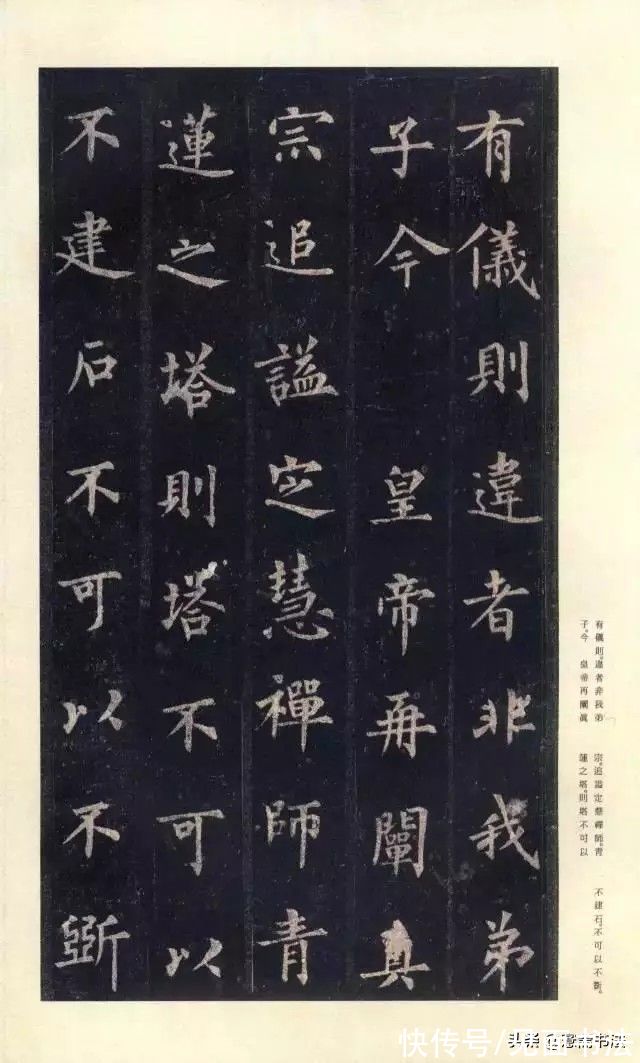 有儀則違者非我弟
子今 皇帝再闡真
宗追謚定慧禪師青
蓮之塔則塔不可以
不建石不可以不斲
有儀則。違者非我弟
子。今 皇帝再闡真
宗。追謚定慧禪師。青
蓮之塔。則塔不可以
不建。石不可以不斲。
快传号/
头条
书法